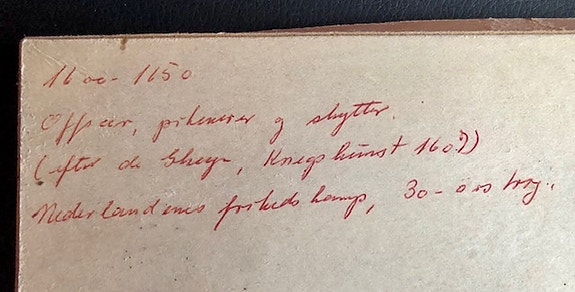 1600-1650
Officer, pikenerer og skytter.
(efter de Gheyn, Kriegskunst 160?))
Nederlandenes frihedskamp, 30-års krig.